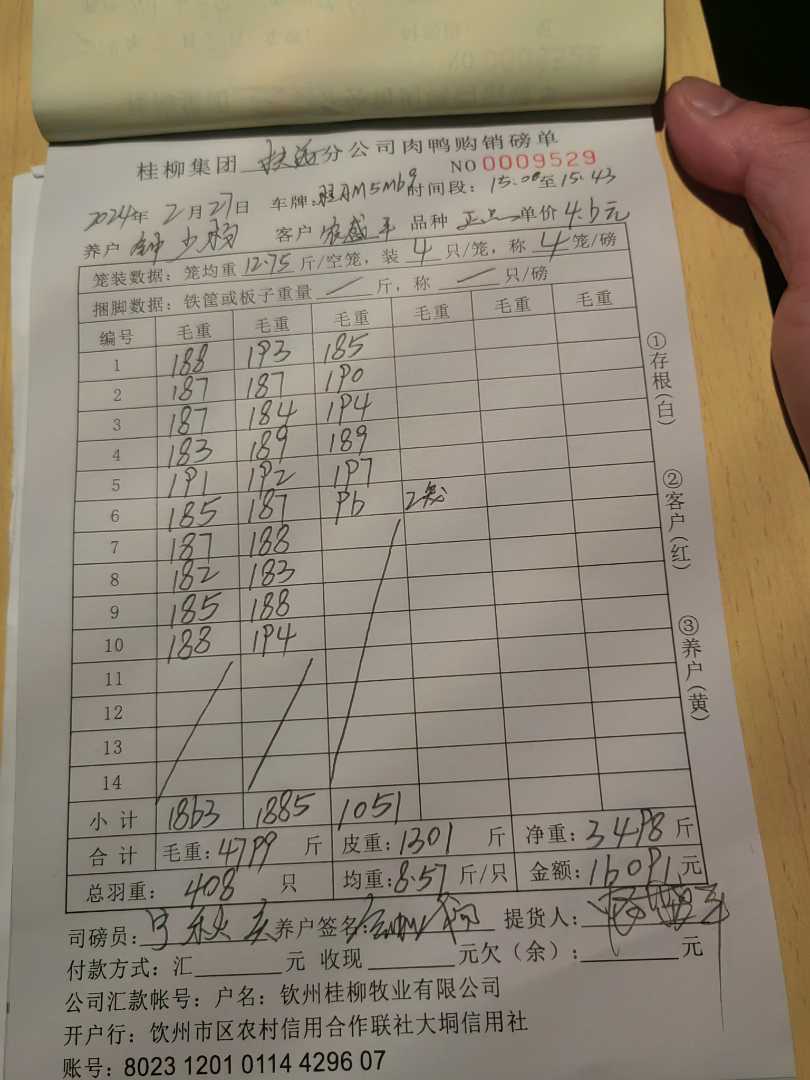 桂柳集团 分公司肉鸭购销磅单
NO 0009529
2024年 2月27日 车牌: 时间段: 15.08至15.43
养户 客户 品种 单价4.6元
笼装数据: 笼均重12.75斤/空笼, 装4只/笼, 称4笼/磅
捆脚数据: 铁筐或板子重量 / 斤, 称 / 只/磅
编号 毛重 毛重 毛重 毛重 毛重 毛重
1 188 193 185
2 187 187 190
3 187 184 194
4 183 189 189
5 191 192 197
6 185 187 96 2笼
7 187 188
8 182 183
9 185 188
10 188 194
11
12
13
14
小计 1863 1885 1051
合计 毛重: 4799斤 皮重: 1301斤 净重: 3498斤
总羽重: 408只 均重: 8.57斤/只 金额: 16091元
司磅员: 养户签名: 提货人:
付款方式: 汇 元 收现 元欠(余): 元
公司汇款帐号: 户名: 钦州桂柳牧业有限公司
开户行: 钦州市区农村信用合作联社大垌信用社
账号: 8023 1201 0114 4296 07
①存根(白)
②客户(红)
③养户(黄)